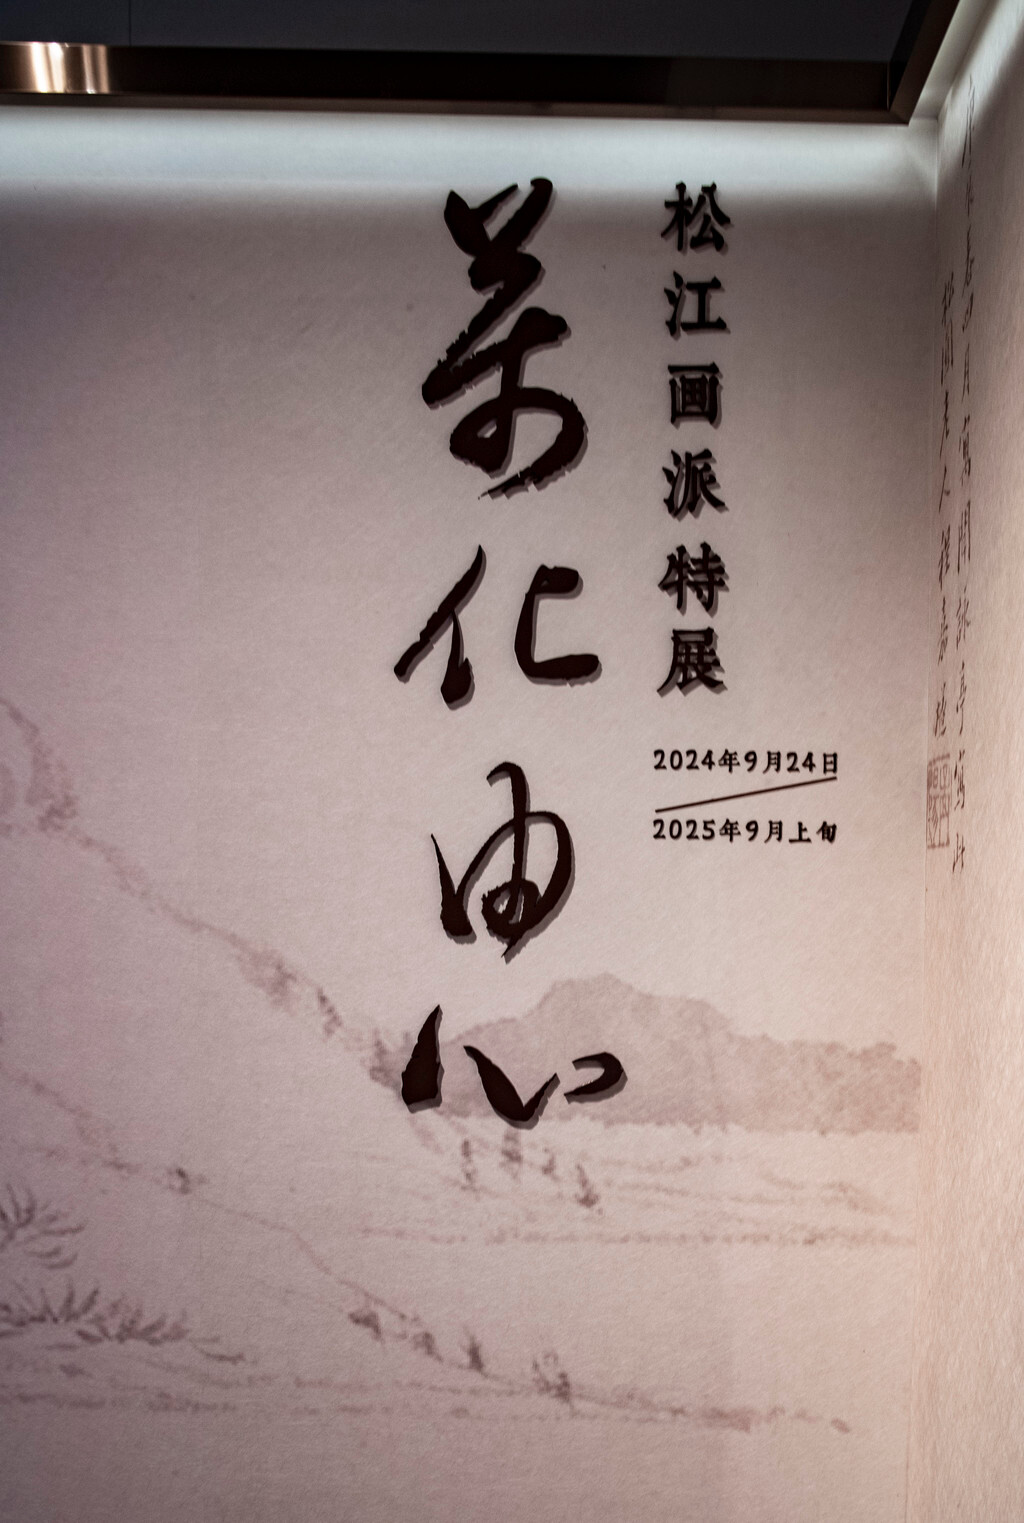 松江画派特展
2024年9月24日
2025年9月上旬
萬化由心